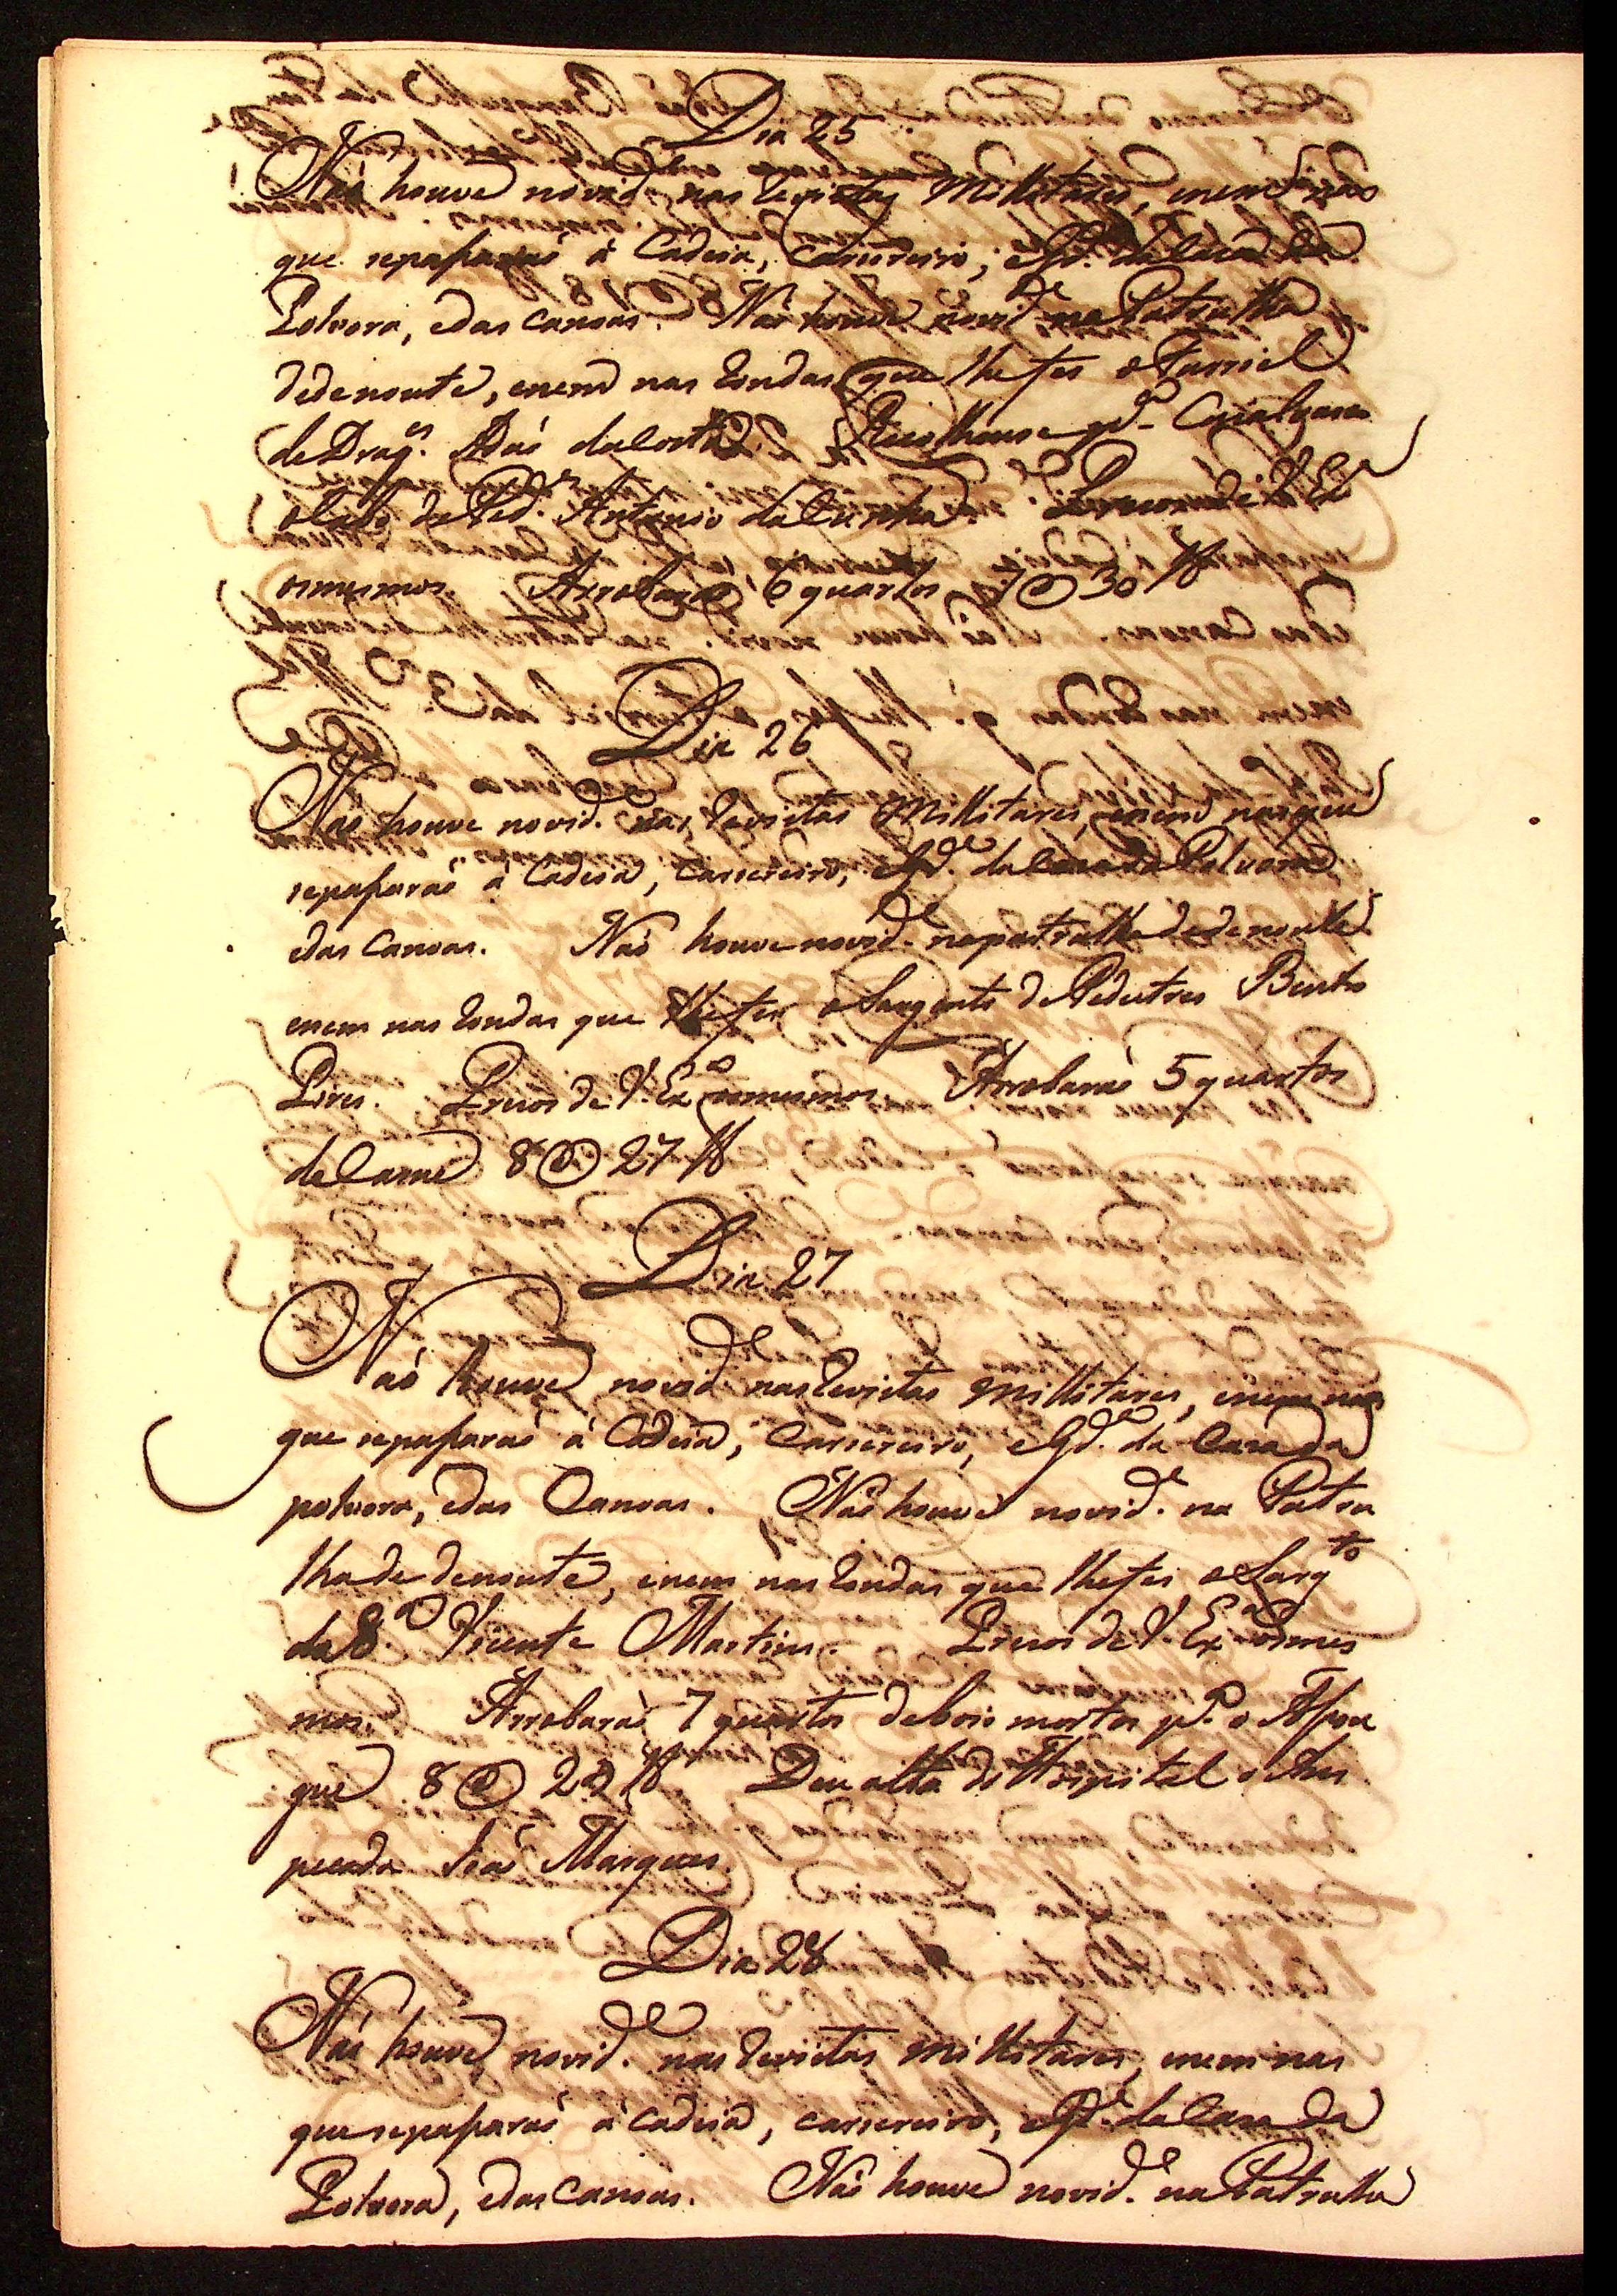 Dia 25
Naõ houve novid.e nas Revistas Millitares, enem
que sepaſsaraõ â Cadeia, Carsereiro, eGd.a daCaza da
Polvora, edas Canoas. Naõ houve novid.e na Patrulha
dedenoute, enem nas Rondas que lhefes oFurriel
deDrag.es daCosta.
de Ped. Antonio daCunha.
osmesmos. Arrobaraõ 6 quartos 7@30 lb
Dia 26
Naõ houve novid.e nas Revistas Millitares, enem nasque
sepaſsaraõ â Cadeia, Carsereiro, eGd.a daCaza da Polvora,
edas Canoas. Naõ houve novid.e napatrulha dedenoute
enem nas Rondas que lhefes oSargento dePedestres Bento
Pires. Prezos de V. Ex.a osmesmos. Arrobaraõ 5 quartos
deCarne 8@27 lb
Dia 27
Naõ houve novid.e nasRevistas Millitares, enem nas
que sepaſsaraõ â Cadeia, Carsereiro, eGd.a da Caza da
polvora, edas Canoas. Naõ houve novid.e na Patru
lha de denoute, enem nas Rondas que lhefes oSarg.to
da 8.a Vicente Martins. Prezos de V. Ex.a osmes
mos. Arrobaraõ 7 quartos deBois mortos p.a o Aſsou
gue 8@ lb Deu alta do Hospital o Ans
pecada Joaõ Marques.
Dia 28
Naõ houve novid.e nas Revistas Millitares, enem nas
que sepaſsaraõ â cadeia, carsereiro, eGd.a daCaza da
Polvora, edas canoas. Naõ houve novid.e na Patrulha